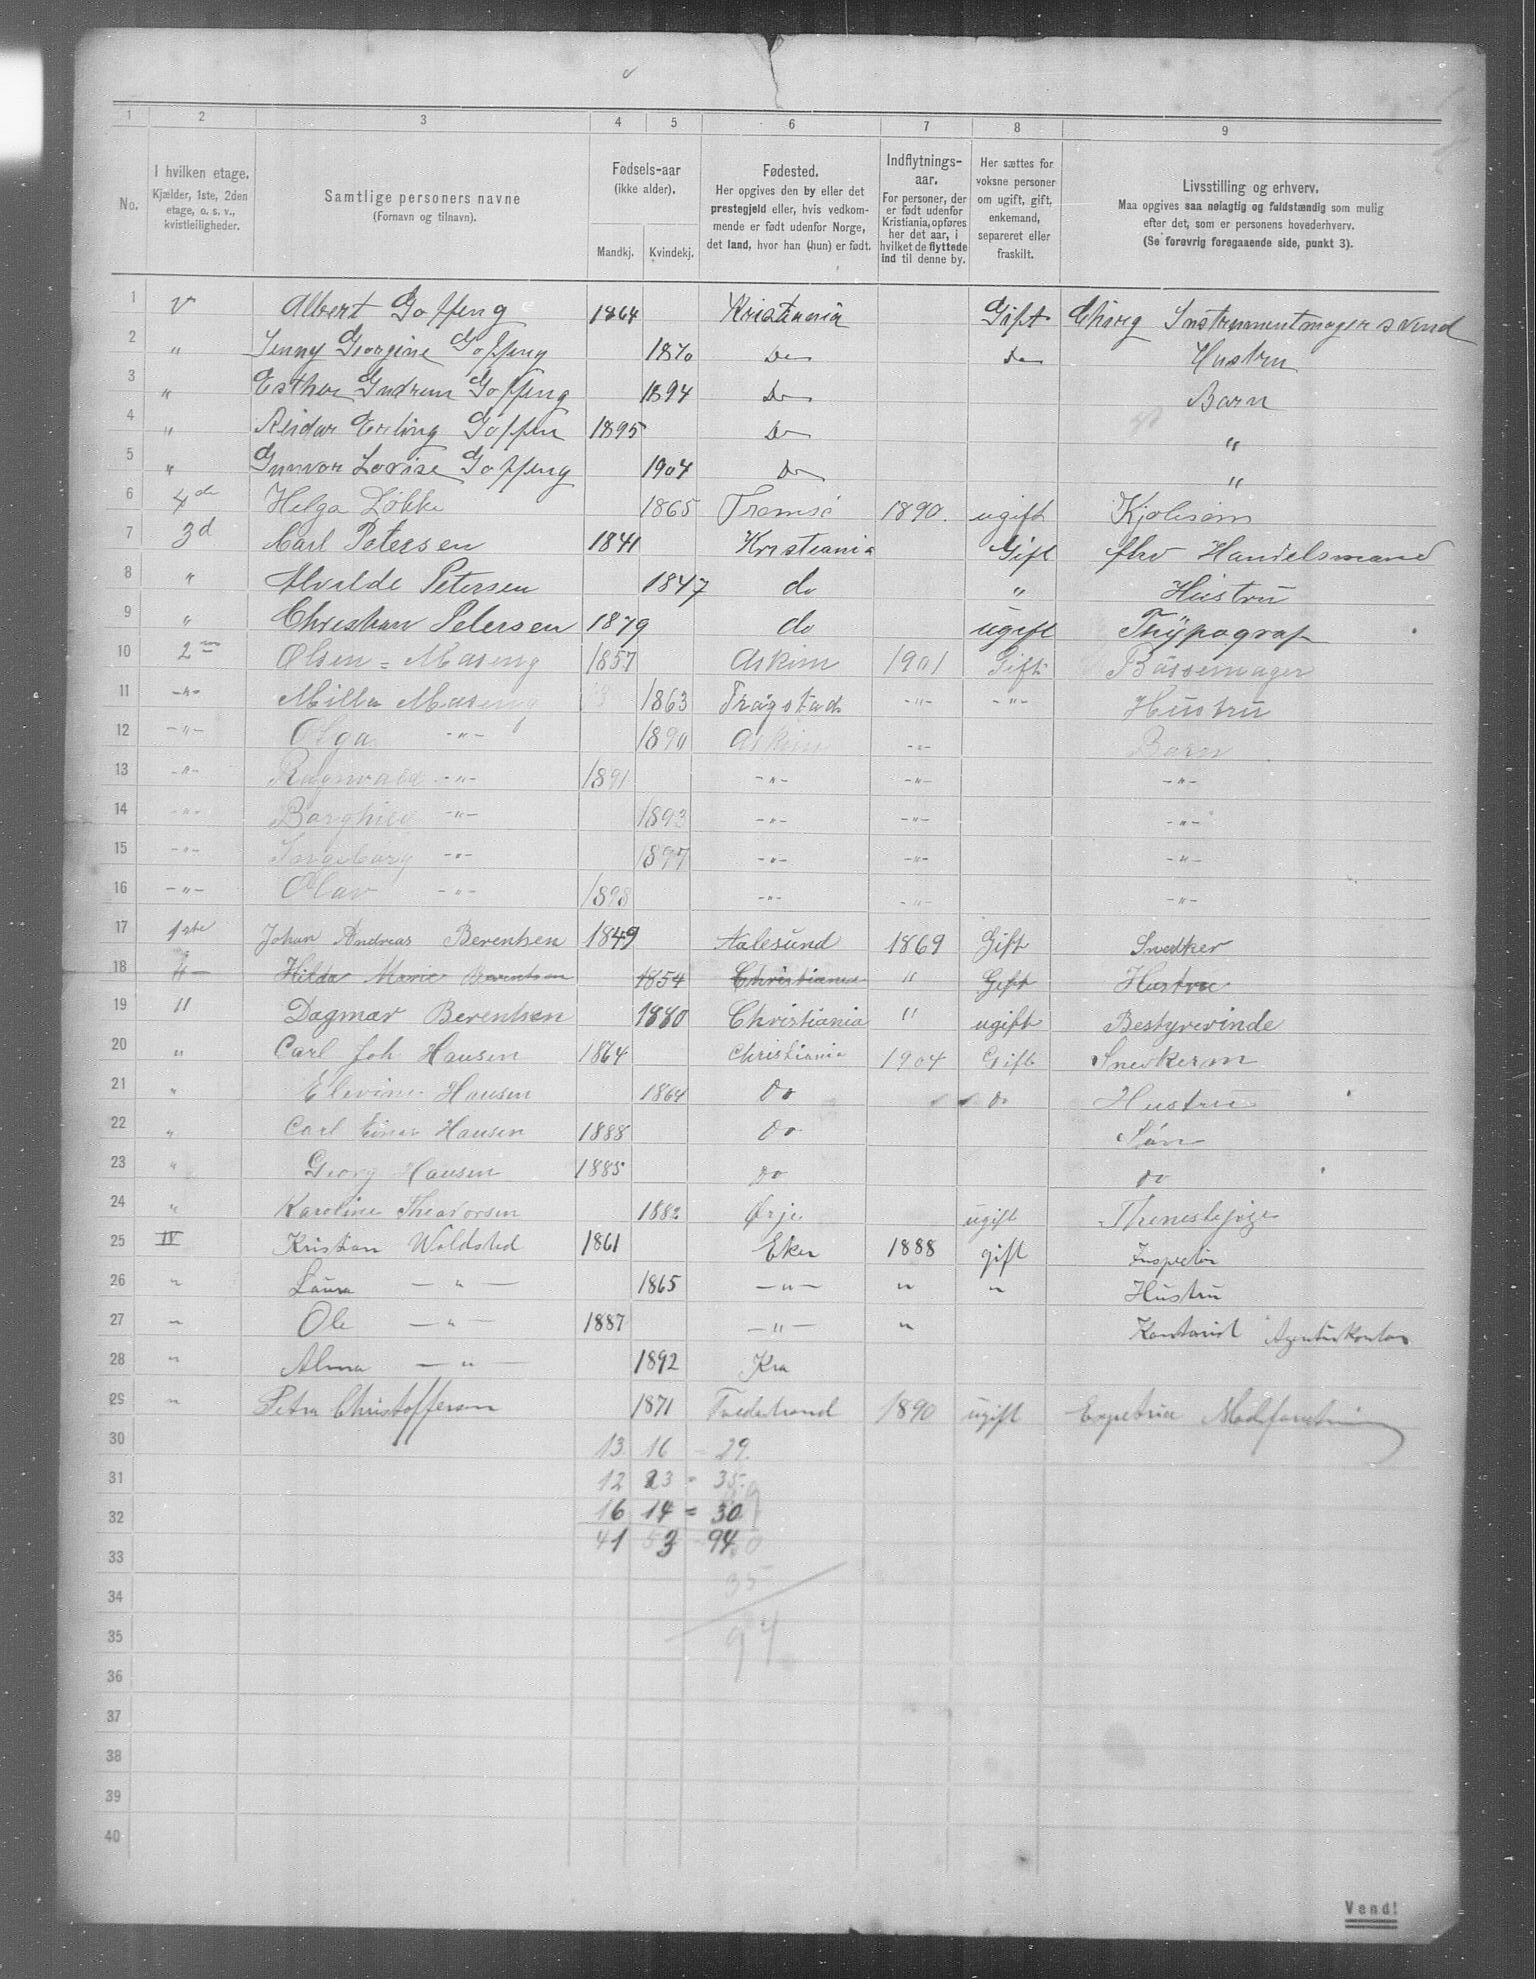 1 2 3 4 5 6 7 8 9
No. I hvilken etage. Kjælder, 1ste, 2den etage, o. s. v., kvistleiligheder. Samtlige personers navne (Fornavn og tilnavn). Fødsels-aar (ikke alder). Mandkj. Kvindekj. Fødested. Her opgives den by eller det prestegjeld eller, hvis vedkommende er født udenfor Norge, det land, hvor han (hun) er født. Indflytnings-aar. For personer, der er født udenfor Kristiania, opføres her det aar, i hvilket de flyttede ind til denne by. Her sættes for voksne personer om ugift, gift, enkemand, separeret eller fraskilt. Livsstilling og erhverv. Maa opgives saa nøiagtig og fuldstændig som mulig efter det, som er personens hovederhverv. (Se forøvrig foregaaende side, punkt 3).
1 V Albert Goffeng 1864 Kristiania Gift Chirg Instrumentmagersvend
2 " Jenny Georgine Goffeng 1870 Do Do Hustru
3 " Esther Gudrun Goffeng 1894 Do Barn
4 " Reidar Erling Goffen 1895 Do "
5 " Gunvor Lovise Goffeng 1904 Do "
6 4de Helga Løkke 1865 Tromsø 1890. ugift Kjolesøm
7 3d Carl Petersen 1841 Kristiania Gift fhv Handelsmand
8 " Alvilde Petersen 1847 do " Hustru
9 " Christian Petersen 1879 do ugift Thypograf
10 2 Olsen = Maseng 1857 Askim 1901 Gift Bøssemager
11 -"- Milla Maseng 1863 Trøgstad -"- -"- Hustru
12 -"- Olga -"- 1890 Askim -"- Barn
13 -"- Ragnvald -"- 1891 -"- -"- -"-
14 -"- Borghild -"- 1893 -"- -"- -"-
15 -"- Ingeborg -"- 1897 -"- -"- -"-
16 -"- Olav -"- 1898 -"- -"- -"-
17 1ste Johan Andreas Berentsen 1849 Aalesund 1869 Gift Snedker
18 " Hilda Marie Berentsen 1854 Christiania " Gift Hustru
19 " Dagmar Berentsen 1880 Christiania " ugift Bestyrerinde
20 " Carl Joh Hansen 1864 Christiania 1904 Gift Snedkerm
21 " Elevine Hansen 1864 Do Do Hustru
22 " Carl Einar Hansen 1888 Do Søn
23 " Georg Hansen 1885 Do Do
24 " Karoline Theodorsen 1882 Ørje ugift Thenestepige
25 IV Kristian Woldsted 1861 Eker 1888 gift Inspektør
26 " Laura — " — 1865 — " — " " Hustru
27 " Ole — " — 1887 — " — " Kontorist Agenturkontor
28 " Alma — " — 1892 Kra
29 " Petra Christoffersen 1871 Tvedestrand 1890 ugift
30 13 16 - 29.
31 12 23 = 35.
32 16 14 = 30
33 41 53 94
34 35
35 94
36
37
38
39
40
Vend!